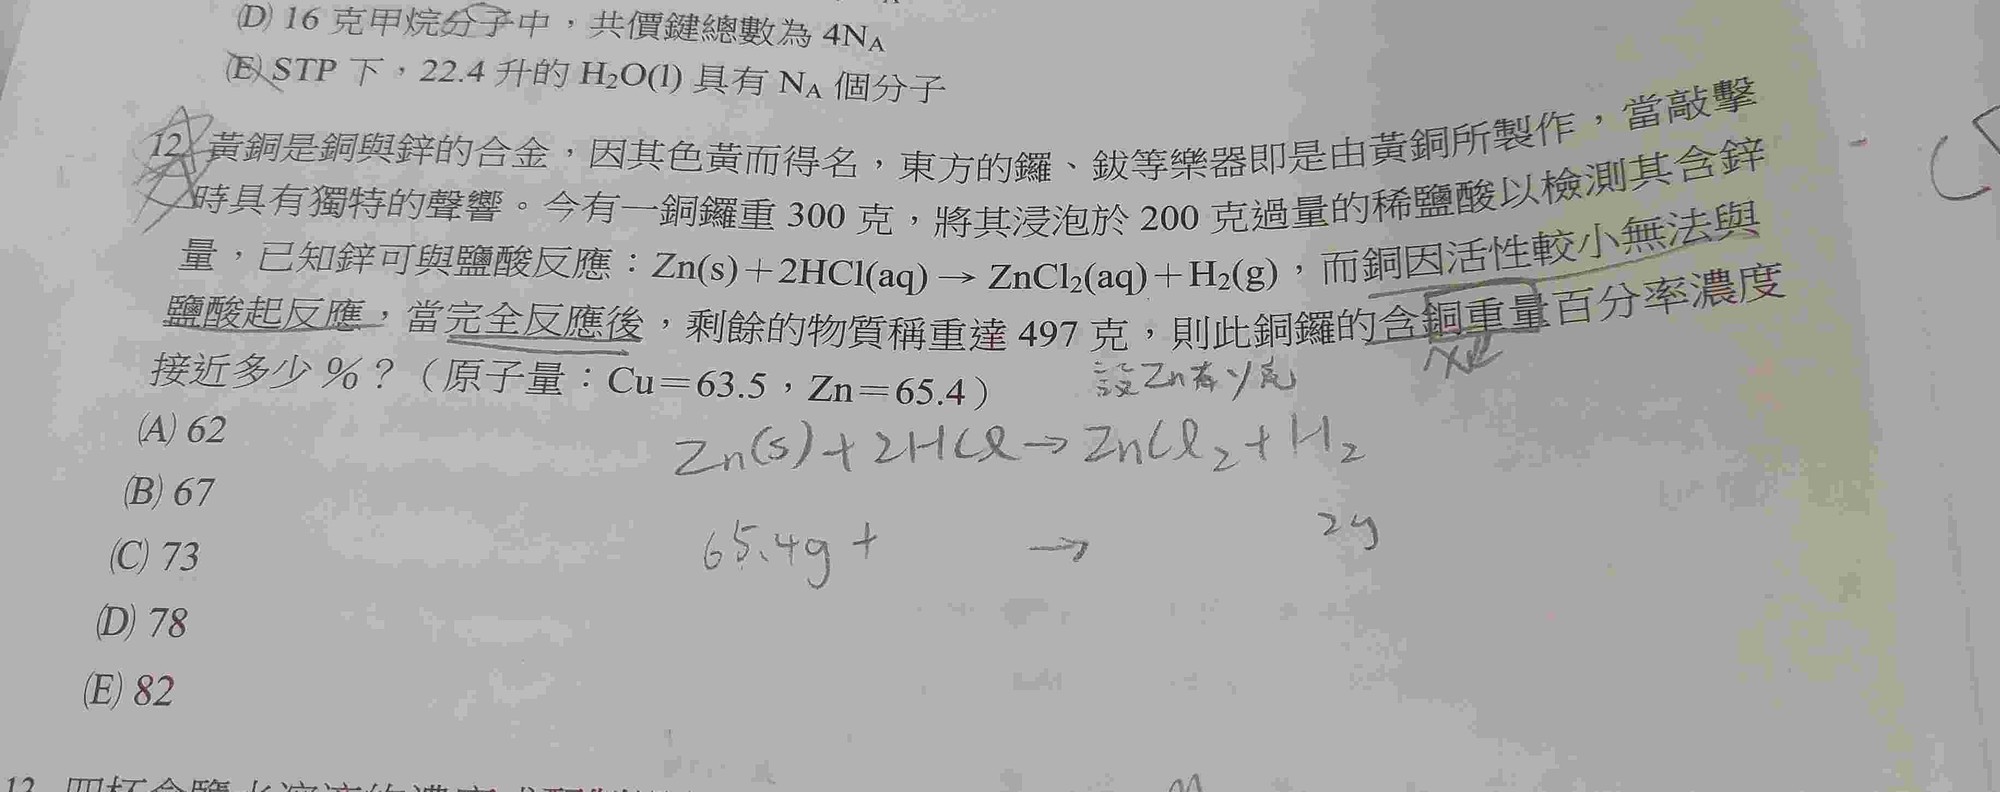 (D) 16 克甲烷分子中，共價鍵總數為 4N_A
(E) STP 下，22.4 升的 H₂O(l) 具有 N_A 個分子
12. 黃銅是銅與鋅的合金，因其色黃而得名，東方的鑼、鈸等樂器即是由黃銅所製作，當敲擊
時具有獨特的聲響。今有一銅鑼重 300 克，將其浸泡於 200 克過量的稀鹽酸以檢測其含鋅
量，已知鋅可與鹽酸反應：Zn(s)＋2HCl(aq) → ZnCl₂(aq)＋H₂(g)，而銅因活性較小無法與
鹽酸起反應，當完全反應後，剩餘的物質稱重達 497 克，則此銅鑼的含銅重量百分率濃度
接近多少 %？（原子量：Cu＝63.5，Zn＝65.4）
設Zn有y克
(A) 62
Zn(s)+2HCl→ZnCl₂+H₂
(B) 67
65.4g + → 2g
(C) 73
(D) 78
(E) 82